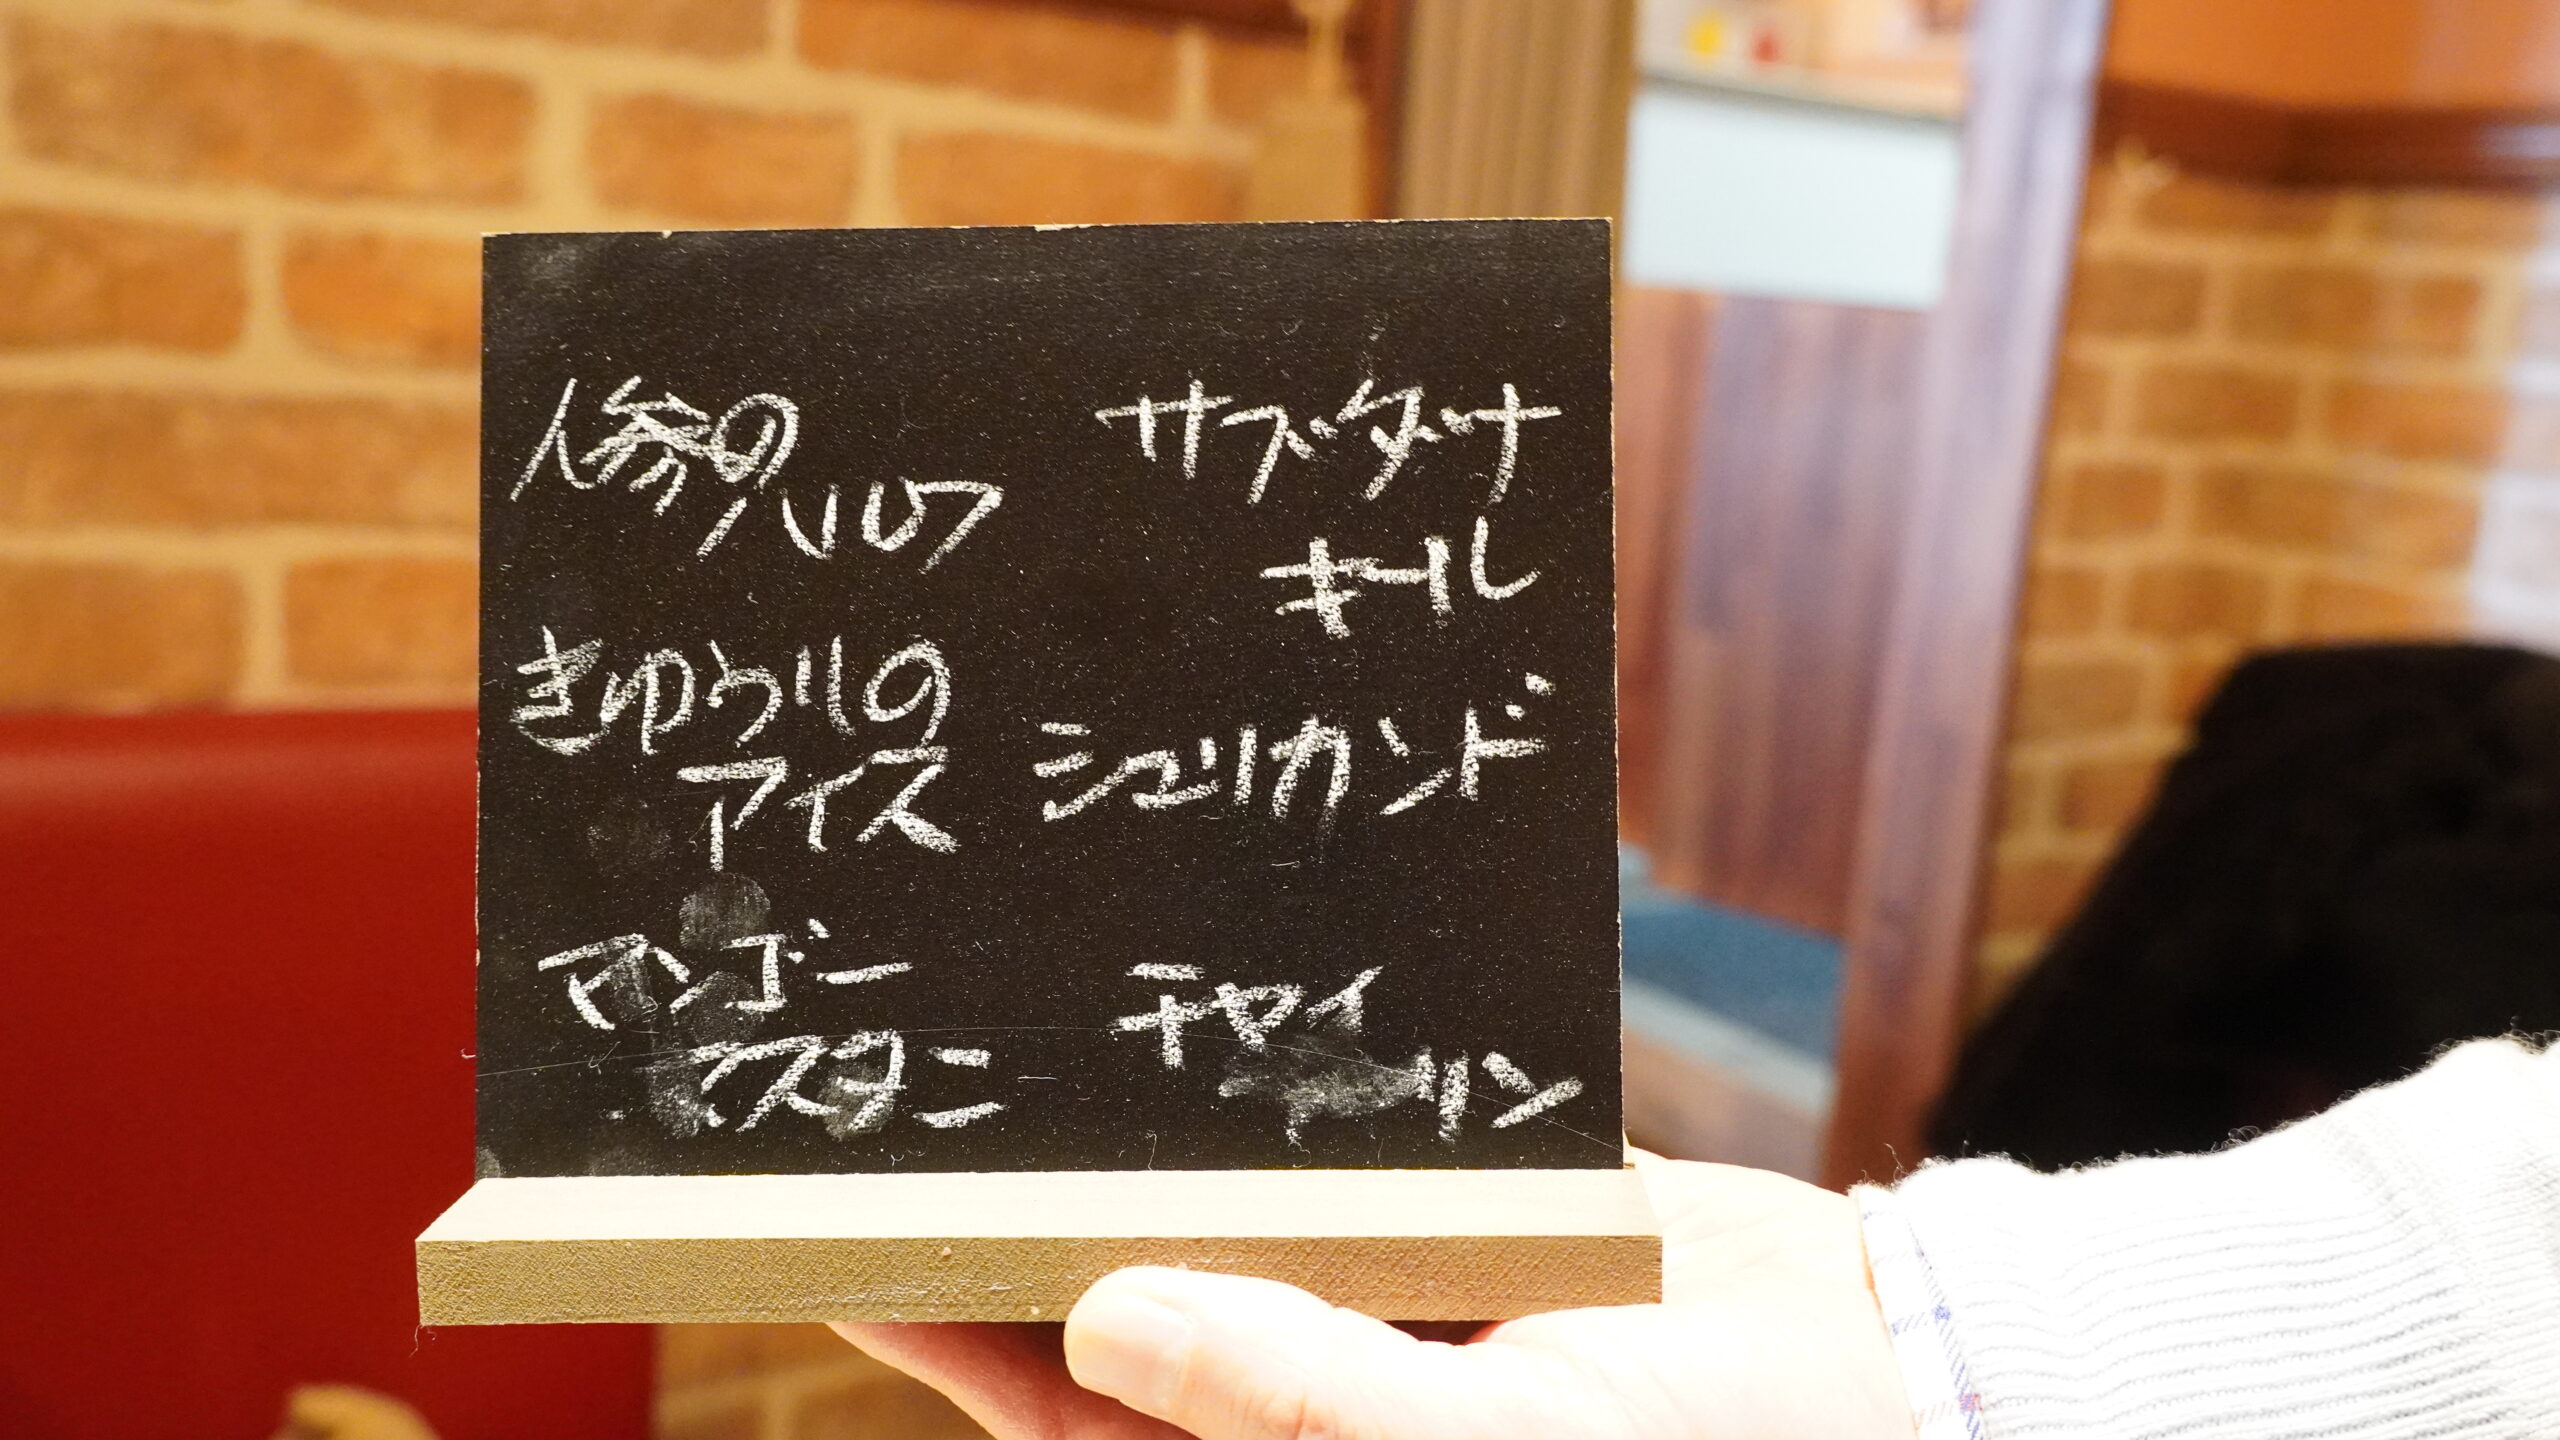 人参の
ハルワ
きゅうりの
アイス
マンゴー
マスタニ
サブダナ
キール
シュリカンド
チャイ
プリン